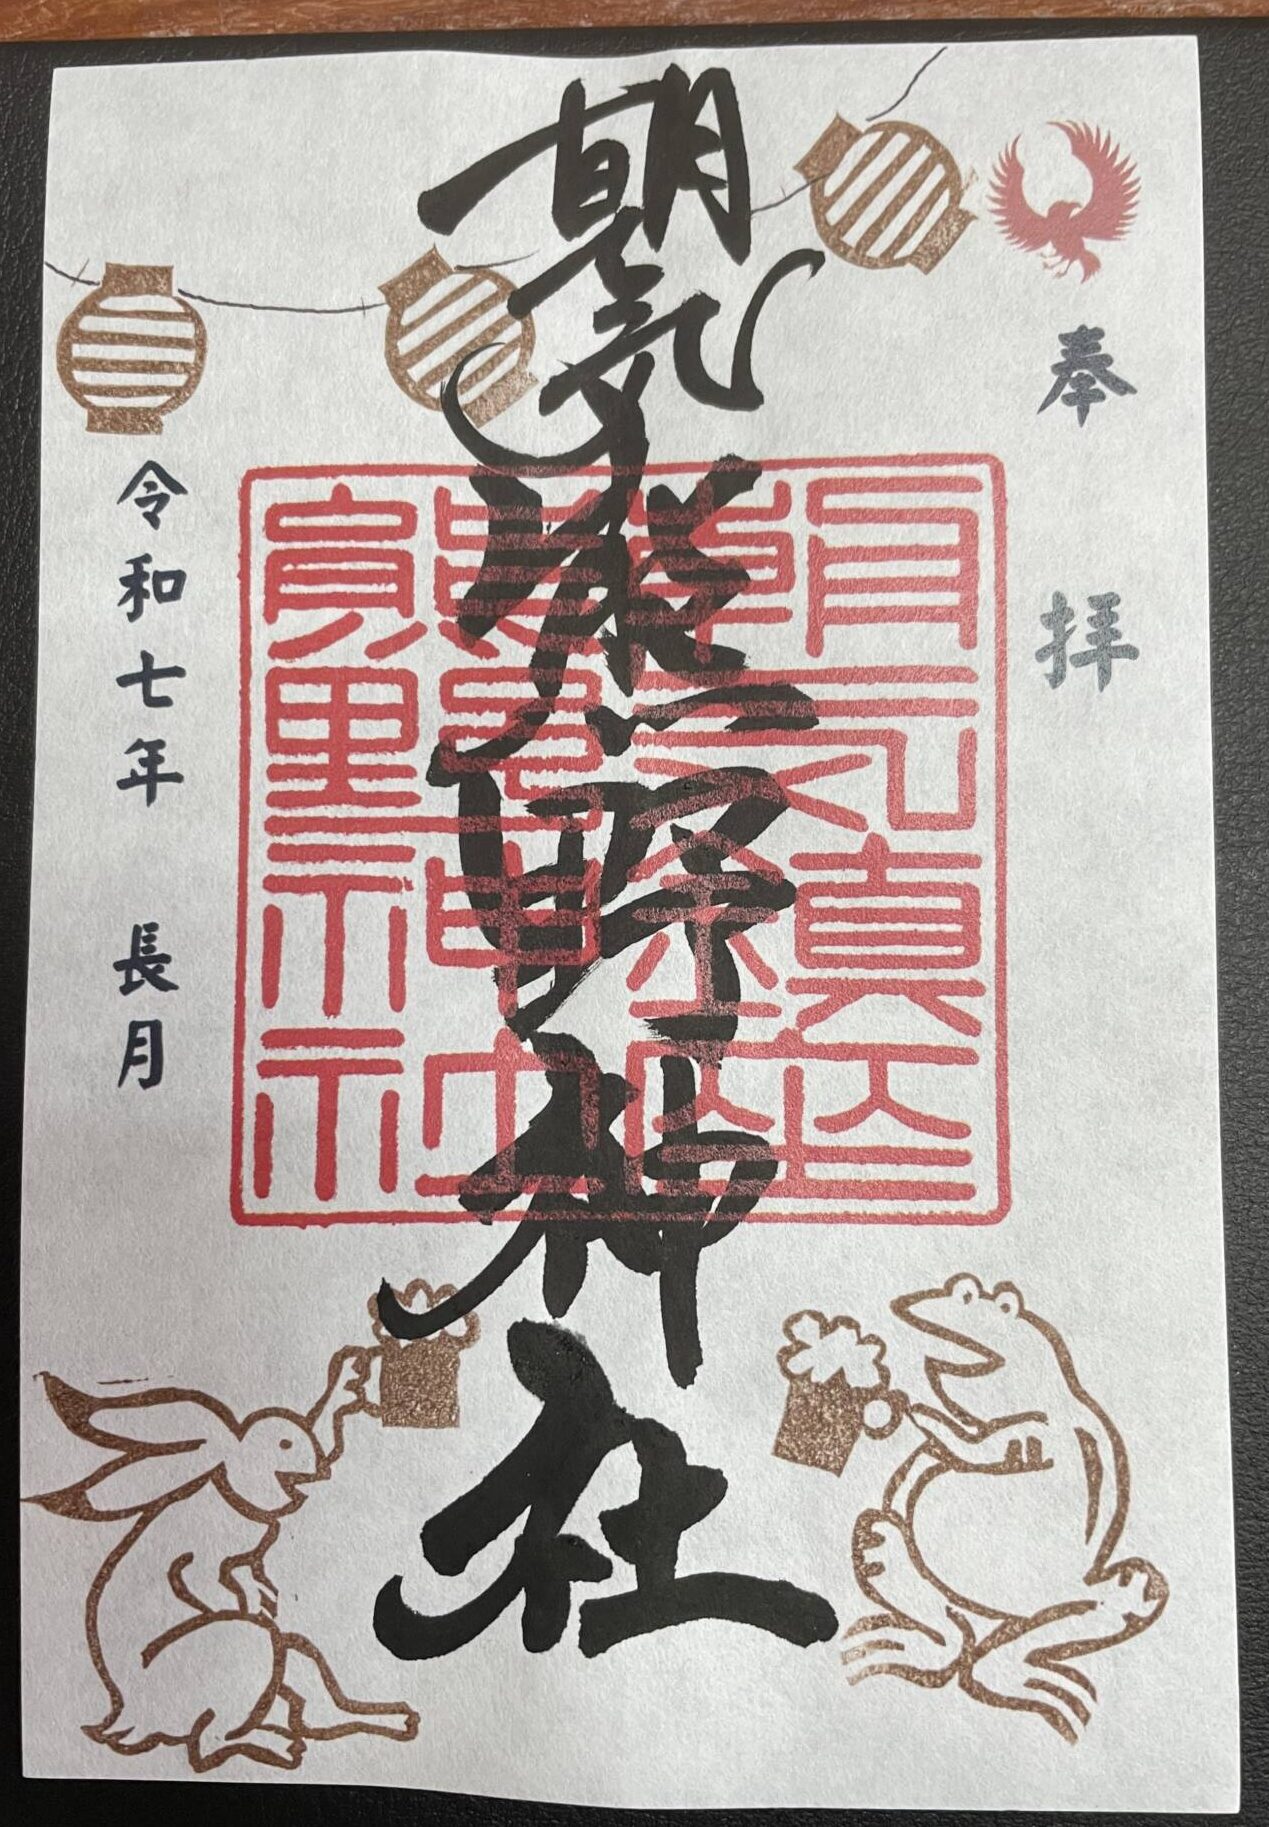 奉拝
朝気熊野神社
朝気鎮座
熊野神社
令和七年 長月